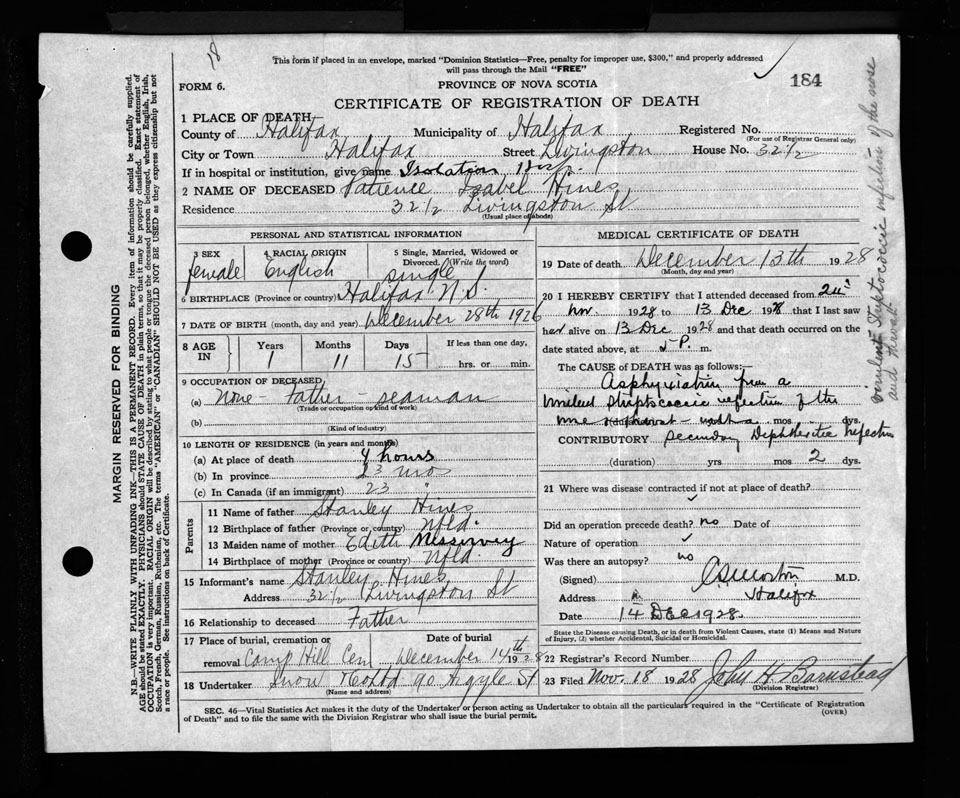 18
This form if placed in an envelope, marked "Dominion Statistics—Free, penalty for improper use, $300," and properly addressed
will pass through the Mail "FREE"
184
FORM 6.
PROVINCE OF NOVA SCOTIA
CERTIFICATE OF REGISTRATION OF DEATH
1 PLACE OF DEATH
County of Halifax Municipality of Halifax Registered No.
(For use of Registrar General only)
City or Town Halifax Street Livingston House No. 32½
If in hospital or institution, give name Isolation Hosp.
2 NAME OF DECEASED Patience Isabel Hines
Residence 32½ Livingston St
(Usual place of abode)
PERSONAL AND STATISTICAL INFORMATION
3 SEX 4 RACIAL ORIGIN 5 Single, Married, Widowed or
Divorced. (Write the word)
female English single
6 BIRTHPLACE (Province or country) Halifax N.S.
7 DATE OF BIRTH (month, day and year) December 28th 1926
8 AGE IN Years Months Days If less than one day,
1 11 15 hrs. or min.
9 OCCUPATION OF DECEASED
(a) None - Father - seaman
(Trade or occupation or kind of work)
(b)
(Kind of industry)
10 LENGTH OF RESIDENCE (in years and months)
(a) At place of death 4 hours
(b) In province 23 mos
(c) In Canada (if an immigrant) 23 "
Parents
11 Name of father Stanley Hines
12 Birthplace of father (Province or country) Nfld.
13 Maiden name of mother Edith Messervey
14 Birthplace of mother (Province or country) Nfld.
15 Informant's name Stanley Hines
Address 32½ Livingston St
16 Relationship to deceased Father
17 Place of burial, cremation or Date of burial
removal Camp Hill Cem December 14th 1928
18 Undertaker Snow & Co Ltd 90 Argyle St
(Name and address)
MEDICAL CERTIFICATE OF DEATH
19 Date of death December 13th 1928
(Month, day and year)
20 I HEREBY CERTIFY that I attended deceased from
Nov. 1928 to 13 Dec 1928 that I last saw
her alive on 13 Dec 1928 and that death occurred on
date stated above, at P. m.
The CAUSE of DEATH was as follows:—
Asphyxiation from a
virulent streptococcic infection of the
nose & throat with a mos. dys.
CONTRIBUTORY secondary Diphtheritic infection
(duration) yrs mos 2 dys.
21 Where was disease contracted if not at place of death?
Did an operation precede death? no Date of
Nature of operation
Was there an autopsy? no
(Signed) M.D.
Address Halifax
Date 14 DEC 1928
State the Disease causing Death, or in death from Violent Causes, state (1) Means and Nature
of Injury, (2) whether Accidental, Suicidal or Homicidal.
22 Registrar's Record Number
23 Filed Nov. 18 1928 John H. Barnstead
(Division Registrar)
SEC. 46—Vital Statistics Act makes it the duty of the Undertaker or person acting as Undertaker to obtain all the particulars required in the "Certificate of Registration
of Death" and to file the same with the Division Registrar who shall issue the burial permit.
(OVER)
MARGIN RESERVED FOR BINDING
N.B.—WRITE PLAINLY WITH UNFADING INK—THIS IS A PERMANENT RECORD. Every item of information should be carefully supplied.
AGE should be stated EXACTLY. PHYSICIANS should STATE CAUSE OF DEATH in plain terms, so that it may be properly classified. Exact statement of
OCCUPATION is very important. RACIAL ORIGIN will be described by stating to what people or tongue the deceased person belonged, whether English, Irish,
Scotch, French, German, Russian, Ruthenian, etc. The terms "AMERICAN" or "CANADIAN" SHOULD NOT BE USED as they express citizenship but not
a race or people. See instructions on back of Certificate.
virulent Streptococcic infection of the nose
and throat